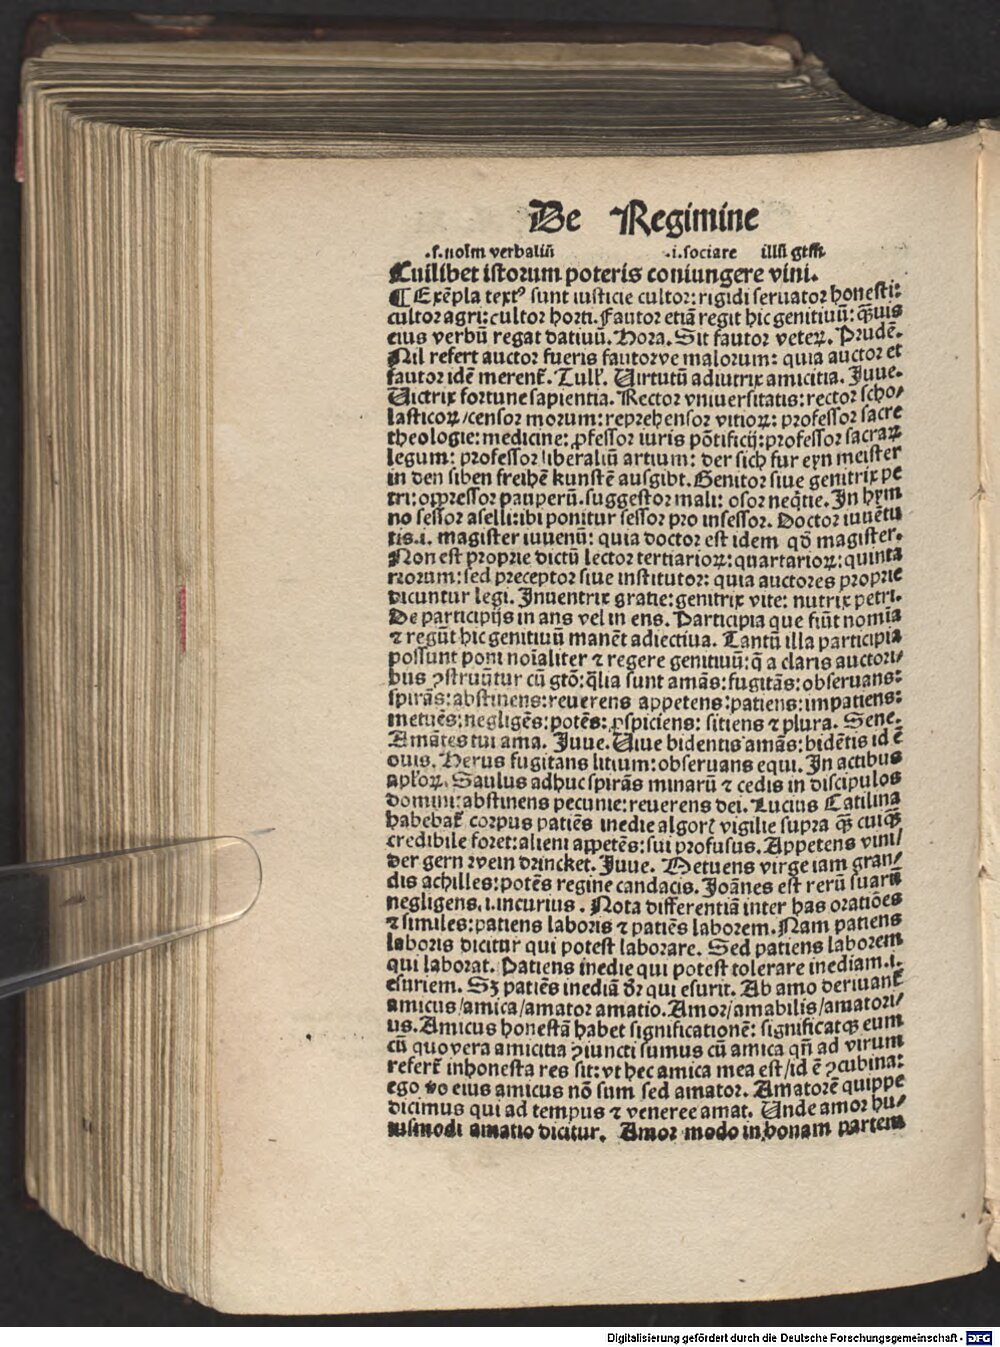 De Regimine
.s. noīm verbaliū .i. sociare illū gtm̄
Cuilibet istorum poteris coniungere vini.
¶ Exēpla textꝰ sunt iusticie cultor: rigidi seruator honesti:
cultor agri: cultor horti. Fautor etiā regit hic genitiuū: q̄uis
eius verbū regat datiuū. Hora. Sit fautor veteꝝ. Prudē.
Nil refert auctor fueris fautorve malorum: quia auctor et
fautor idē merent᷑. Tull. Uirtutū adiutrix amicitia. Juue.
Uictrix fortune sapientia. Rector vniuersitatis: rector scho/
lasticoꝝ/censor morum: reprehensor vitioꝝ: professor sacre
theologie: medicine: ꝓfessor iuris pōtificij: professor sacraꝝ
legum: professor liberaliū artium: der sich fur eyn meister
in den siben freihē kunstē ausgibt. Genitor siue genitrix pe
tri: oppressor pauperū. suggestor mali: osor neq̄tie. In hym
no sessor aselli: ibi ponitur sessor pro insessor. Doctor iuuētu
tis .i. magister iuuenū: quia doctor est idem qd̄ magister.
Non est proprie dictū lector tertiarioꝝ: quartarioꝝ: quinta
riorum: sed preceptor siue institutor: quia auctores proprie
dicuntur legi. Inuentrix gratie: genitrix vite: nutrix petri.
De participijs in ans vel in ens. Participia que fiūt nomīa
⁊ regūt hic genitiuū manēt adiectiua. Tantū illa participia
possunt poni noīaliter ⁊ regere genitiuū: q̄ a claris auctori/
bus ꝯstruūtur cū gtō: q̄lia sunt amās: fugitās: obseruans:
spirās: abstinens: reuerens appetens: patiens: impatiens:
metuēs: negligēs: potēs: ꝓspiciens: sitiens ⁊ plura. Sene.
Amātes tui ama. Juue. Uiue bidentis amās: bidētis id ē
ouis. Herus fugitans litium: obseruans equi. In actibus
apl'oꝝ. Saulus adhuc spirās minarū ⁊ cedis in discipulos
domini: abstinens pecunie: reuerens dei. Lucius Catilina
habebat᷑ corpus patiēs inedie algor᷑ vigilie supra q̄ cuiq̄
credibile foret: alieni appetēs: sui profusus. Appetens vini/
der gern wein drincket. Juue. Metuens virge iam gran/
dis achilles: potēs regine candacis. Joānes est rerū suarū
negligens .i. incurius. Nota differentiā inter has oratiōes
⁊ similes: patiens laboris ⁊ patiēs laborem. Nam patiens
laboris dicitur qui potest laborare. Sed patiens laborem
qui laborat. Patiens inedie qui potest tolerare inediam .i.
esuriem. Sꝫ patiēs inediā dr̄ qui esurit. Ab amo deriuant᷑
amicus/amica/amator amatio. Amor/amabilis/amatori/
us. Amicus honestā habet significationē: significatqꝫ eum
cū quo vera amicitia ꝯiuncti sumus cū amica qn̄ ad virum
refert᷑ inhonesta res sit: vt hec amica mea est/id ē ꝯcubina:
ego vo eius amicus nō sum sed amator. Amatorē quippe
dicimus qui ad tempus ⁊ veneree amat. Unde amor hu/
iusmodi amatio dicitur. Amor modo in bonam partem
Digitalisierung gefördert durch die Deutsche Forschungsgemeinschaft - DFG